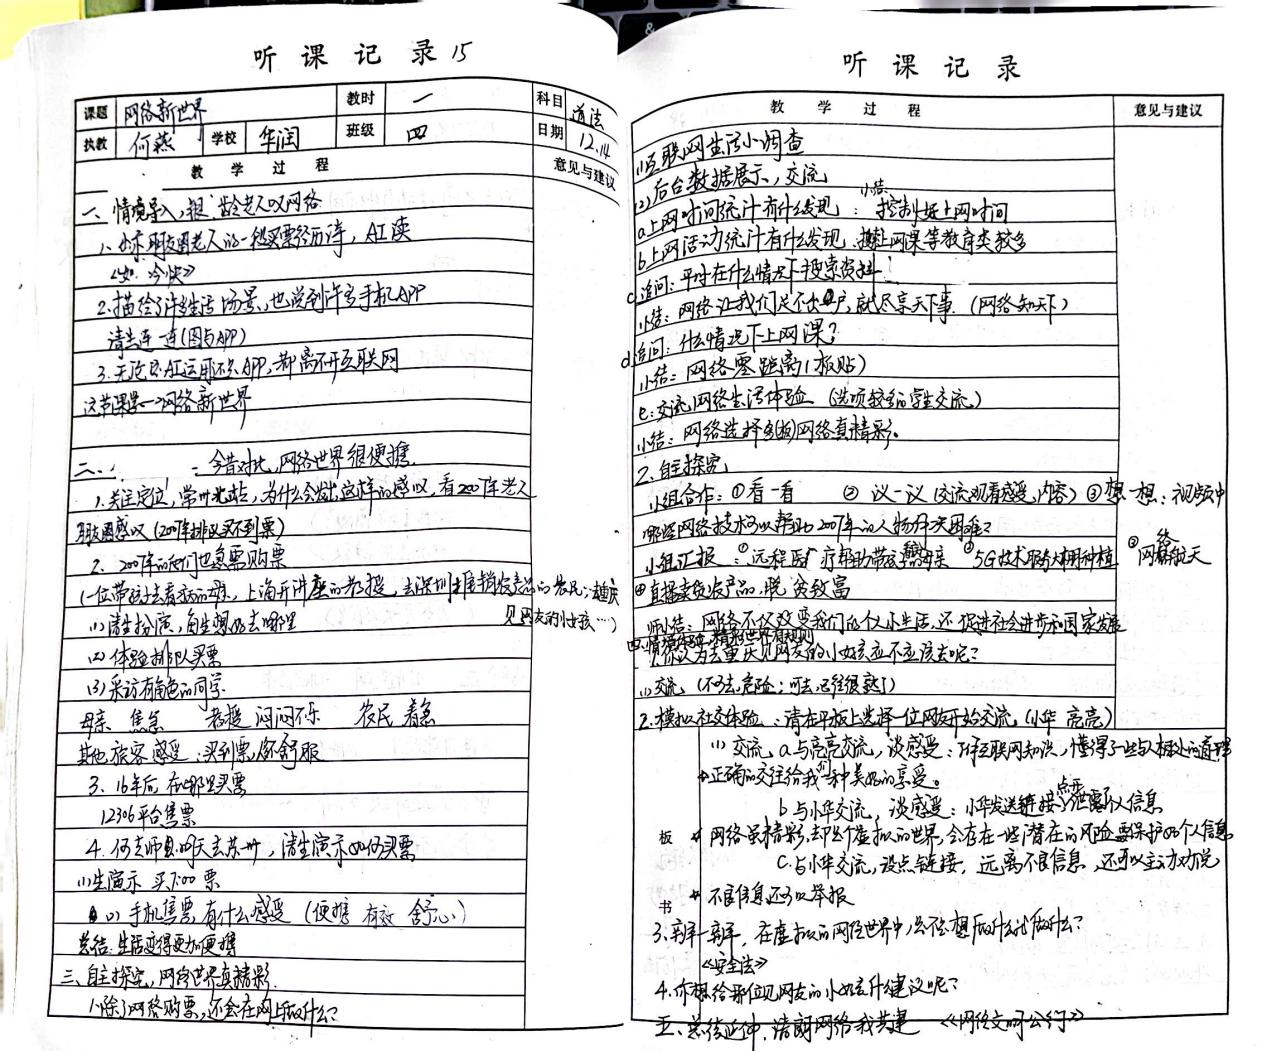 听课记录 15
课题 网络新世界 教时 一 科目 道法
执教 何燕 学校 华润 班级 四 日期 12.14
教学过程 意见与建议
一、情境导入,银龄老人叹网络
1. 出示朋友圈老人的一段买票经历诗,AI读
《如今快》
2. 描绘了许多生活场景,也说到许多手机APP
请生连一连(图与APP)
3. 无论AI运用还是APP,都离不开互联网
这节课学→网络新世界
二、 今昔对比,网络世界很便捷
1. 关注定位,常州北站,为什么会发出这样的感叹,看2007年老人
朋友圈感叹(2007年排队买不到票)
2. 2007年的他们也急需购票
(一位带孩子去看病的母亲,上海开讲座的教授,去深圳推销农产品的农民,去重庆
见网友的小女孩…)
(1) 请生扮演,自主想好去哪里
(2) 体验排队买票
(3) 采访有角色的同学
母亲 焦急 教授 闷闷不乐 农民 着急
其他旅客感受:买到票,很舒服
3. 16年后 在哪里买票
12306平台售票
4. 何老师明天去苏州,请生演示如何买票
(1) 生演示 买下00票
(2) 手机售票,有什么感受(便捷 有效 舒心)
总结 生活变得更加便捷
三、自主探究,网络世界真精彩
1. 除了网络购票,还会在网上做什么?
听课记录
教学过程 意见与建议
(1) 互联网生活小调查
(2) 后台数据展示,交流
a. 上网时间统计有什么发现:小结:控制好上网时间
b. 上网活动统计有什么发现:上网课等教育类较多
c. 追问:平时在什么情况下搜索资料?
小结:网络让我们足不出户,就尽享天下事.(网络知天下)
d. 追问:什么情况下上网课?
小结:网络零距离(板贴)
e: 交流网络生活体验 (选项较多的学生交流)
小结:网络选择多(板)网络真精彩。
2. 自主探究
小组合作:①看一看 ②议一议(交流观看感受,内容)③想一想:视频中
哪些网络技术可以帮助2007年的人物解决困难?
小组汇报 ①远程医疗帮助带孩子的母亲 ②5G技术服务大棚种植 ③网络航天
④直播卖货农产品,脱贫致富
师小结:网络不仅改变我们的个人小生活,还促进社会进步和国家发展
四、情境体验,精彩世界有规则
1. 你认为去重庆见网友的小女孩应不应该去呢?
(1) 交流 (不可去,危险;可去,已经很熟了)
2. 模拟社交体验:请在平板上选择一位网友开始交流 (小华 亮亮)
板书
(1) 交流 a. 与亮亮交流,谈感受:了解互联网知识,懂得了一些与人相处的道理
→正确的交往给我们一种美好的享受。
b 与小华交流,谈感受:小华发送链接,点开泄露个人信息
→网络虽精彩,却是个虚拟的世界,会存在一些潜在的风险,要保护好个人信息
c. 与小华交流,没点链接,远离不良信息,还可以主动劝说
→不良信息还可以举报
3. 辩一辩,在虚拟的网络世界中,是不是想做什么就做什么?
《安全法》
4. 你想给那位见网友的小女孩什么建议呢?
五、总结延伸,清朗网络我共建 《网络文明公约》